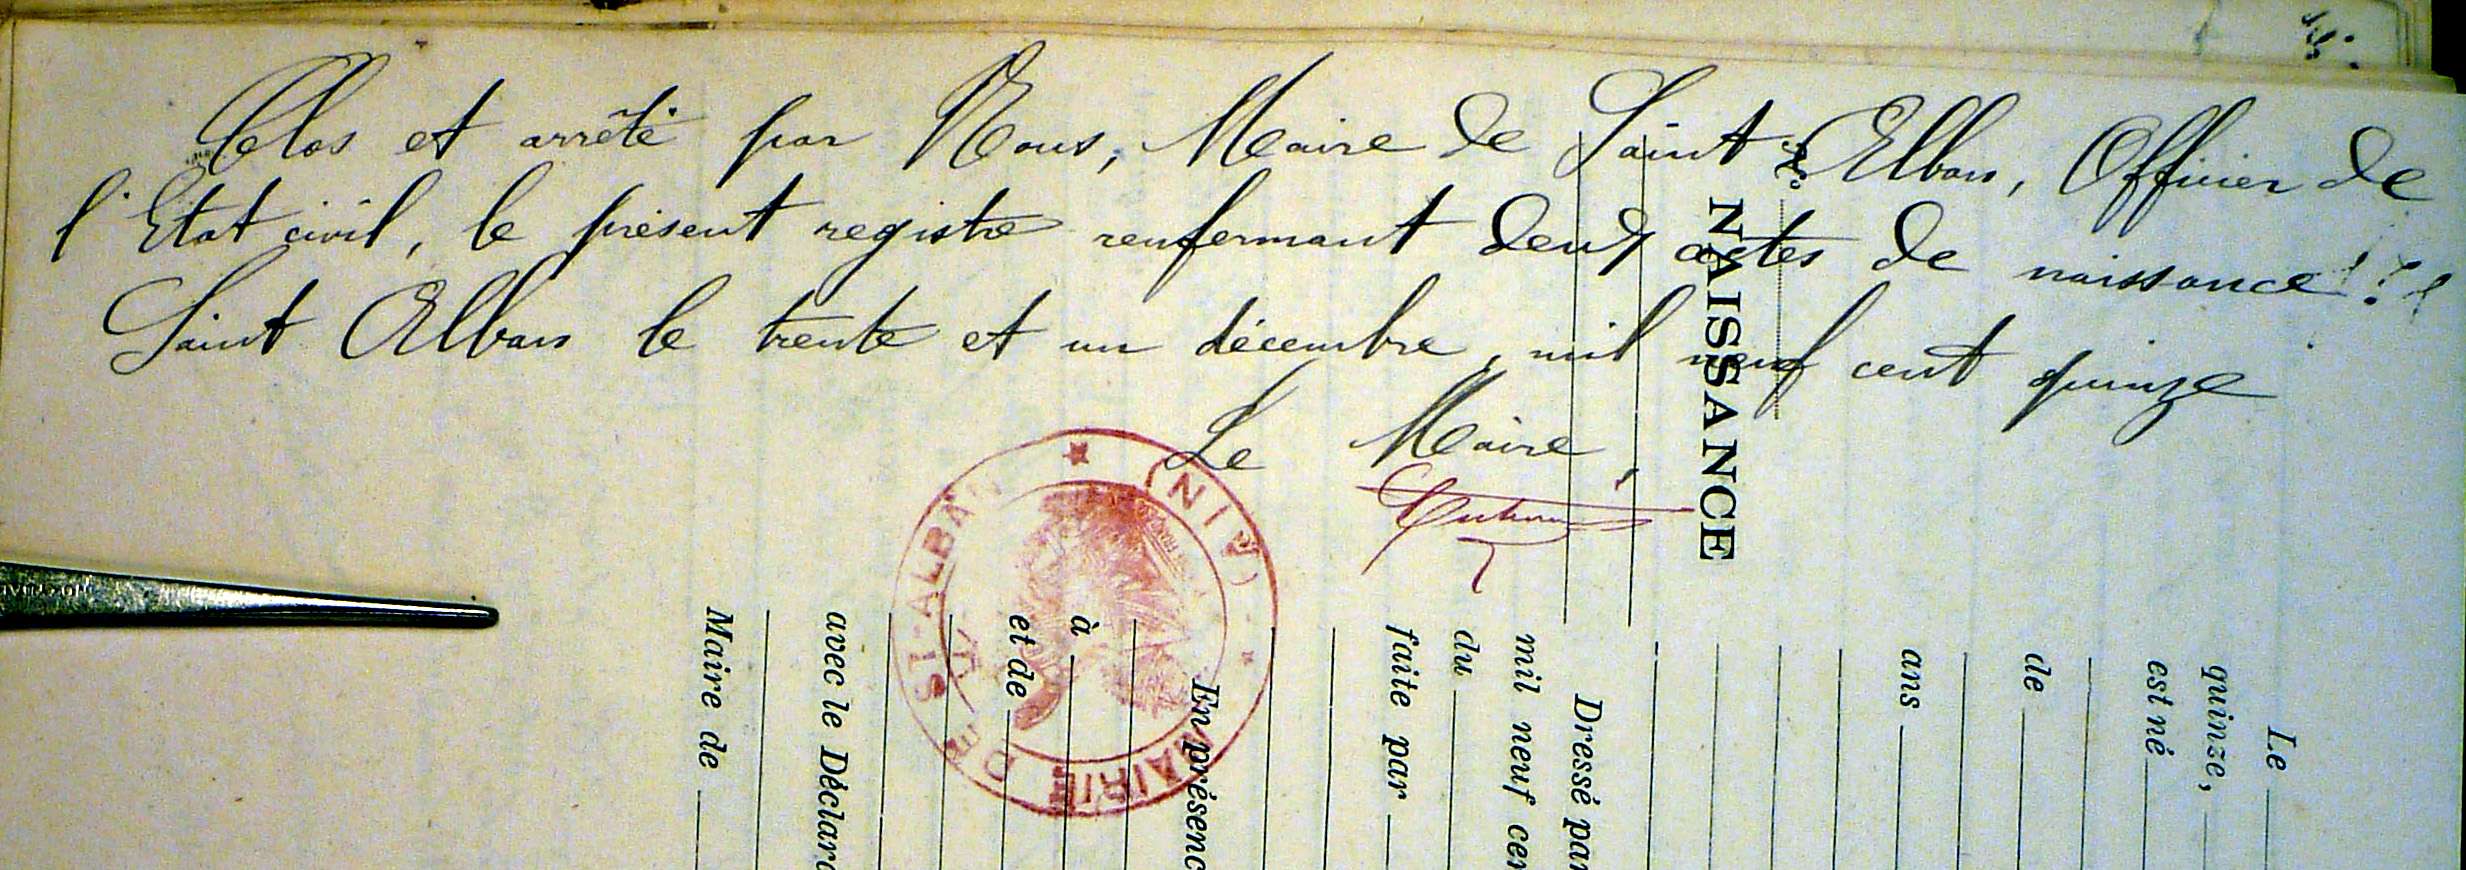 Clos et arrêté par Nous, Maire de Saint Alban, Officier de
l'Etat civil, le présent registre renfermant deux actes de naissance
Saint Alban le trente et un décembre, mil neuf cent quinze
Le Maire,
N°
NAISSANCE
Le
quinze,
est né
de
ans
Dressé par
mil neuf cen
du
faite par
En présenc
à
et de
avec le Déclara
Maire de
MAIRIE DE ST-ALBAN
(AIN)